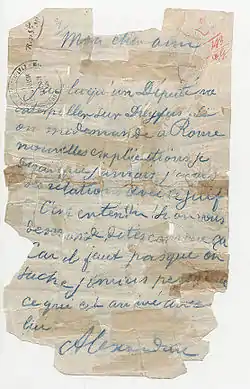 Mon cher ami
J'ai lu qu'un député va
interpeller sur Dreyfus. Si
on me demande à Rome
nouvelles explications, je
dirai que jamais j'avais
des relations avec ce juif.
C'est entendu. Si on vous
demande, dites comme ça,
Car il faut pas que on
sache jamais personne
ce que est arrivé avec
lui
Alexandrine